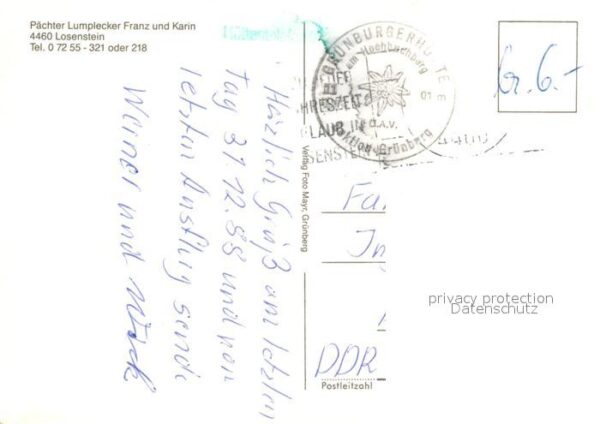 Pächter Lumplecker Franz und Karin
4460 Losenstein
Tel. 0 72 55 - 321 oder 218
Hüttenp
GRÜNBURGERHÜTTE
am Hochbuchberg
O.A.V.
Sektion Grünberg
Verlag Foto Mayr, Grünberg
Gr. 6.-
Herzlich Grüß am letzten
Tag 31.12.88 und von
letzten Ausflug sende
Werner und
Fa
In
DDR
Postleitzahl
privacy protection
Datenschutz